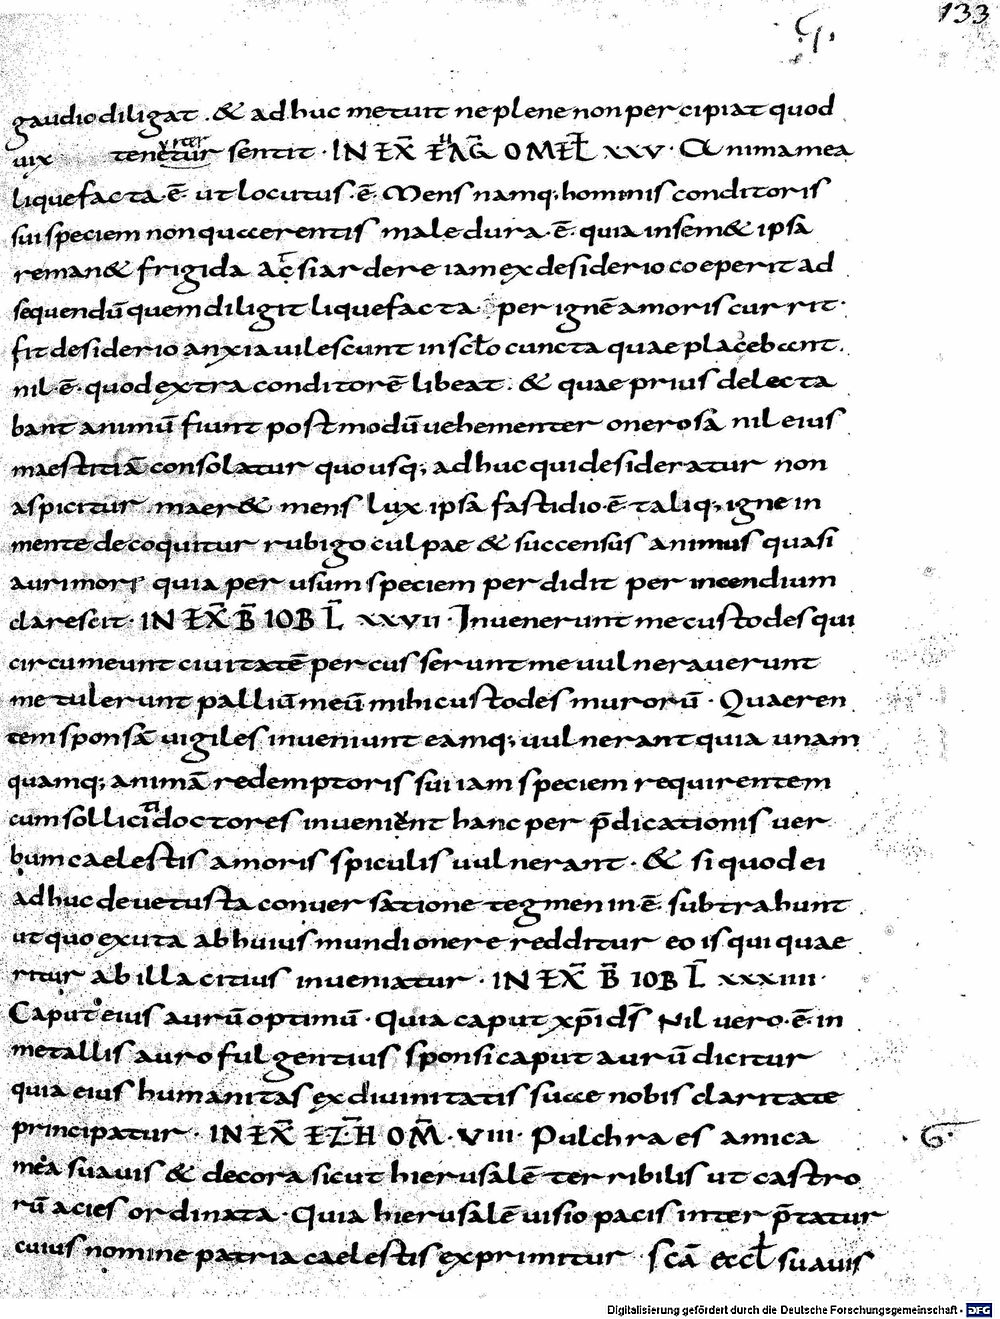 133
G.
gaudio diligat . & adhuc metuit ne plene non percipiat quod
uix tenetur uter sentit · IN EX̄ EUAḠ OMEL̄ XXV · Anima mea
liquefacta · ē ut locutus · ē · Mens namq; hominis conditoris
sui speciem non quaerentis male dura · ē · quia in sem& ipsa
reman& frigida ac̄ si ardere iam ex desiderio coeperit ad
sequendū quem diligit liquefacta per ignē amoris currit ·
fit desiderio anxia uilescunt in scl̄o cuncta quae placebant .
nil · ē · quod extra conditorē libeat . & quae prius delecta
bant animū fiunt postmodū uehementer onerosa nil eius
maestitiā consolatur quousq; adhuc qui desideratur non
aspicitur . maer& mens lux ipsa fastidio · ē · taliq; igne in
mente decoquitur rubigo culpae & succensus animus quasi
auri mori quia per usum speciem perdidit per incendium
clarescit · IN EX̄ B̄ IOB L̄ XXVII · Inuenerunt me custodes qui
circumeunt ciuitatē percusserunt me uulnerauerunt
me tulerunt palliū meū mihi custodes murorū · Quaeren
tem sponsā uigiles inueniunt eamq; uulnerant quia unam
quamq; animā redemptoris sui iam speciem requirentem
cum solliciti doctores inuenient hanc per p̄dicationis uer
bum caelestis amoris spiculis uulnerant · & si quod ei
adhuc de uetusta conuersatione tegmen in · ē · subtrahunt
ut quo exuta ab huius mundi onere redditur eo is qui quae
ritur ab illa citius inueniatur · IN EX̄ B̄ IOB L̄ XXXIIII ·
Caput eius aurū optimū · Quia caput xp̄i ds̄ Nil uero · ē · in
metallis auro fulgentius sponsi caput aurū dicitur
quia eius humanitas ex diuinitatis suae nobis claritate
principatur · IN EX̄ EZH̄ OM̄ · VIII · Pulchra es amica
mea suauis & decora sicut hierusalē terribilis ut castro
rū acies ordinata · Quia hierusalē uisio pacis inter p̄tatur
cuius nomine patria caelestis exprimitur · scā eccl̄ suauis
· G ·
Digitalisierung gefördert durch die Deutsche Forschungsgemeinschaft - DFG